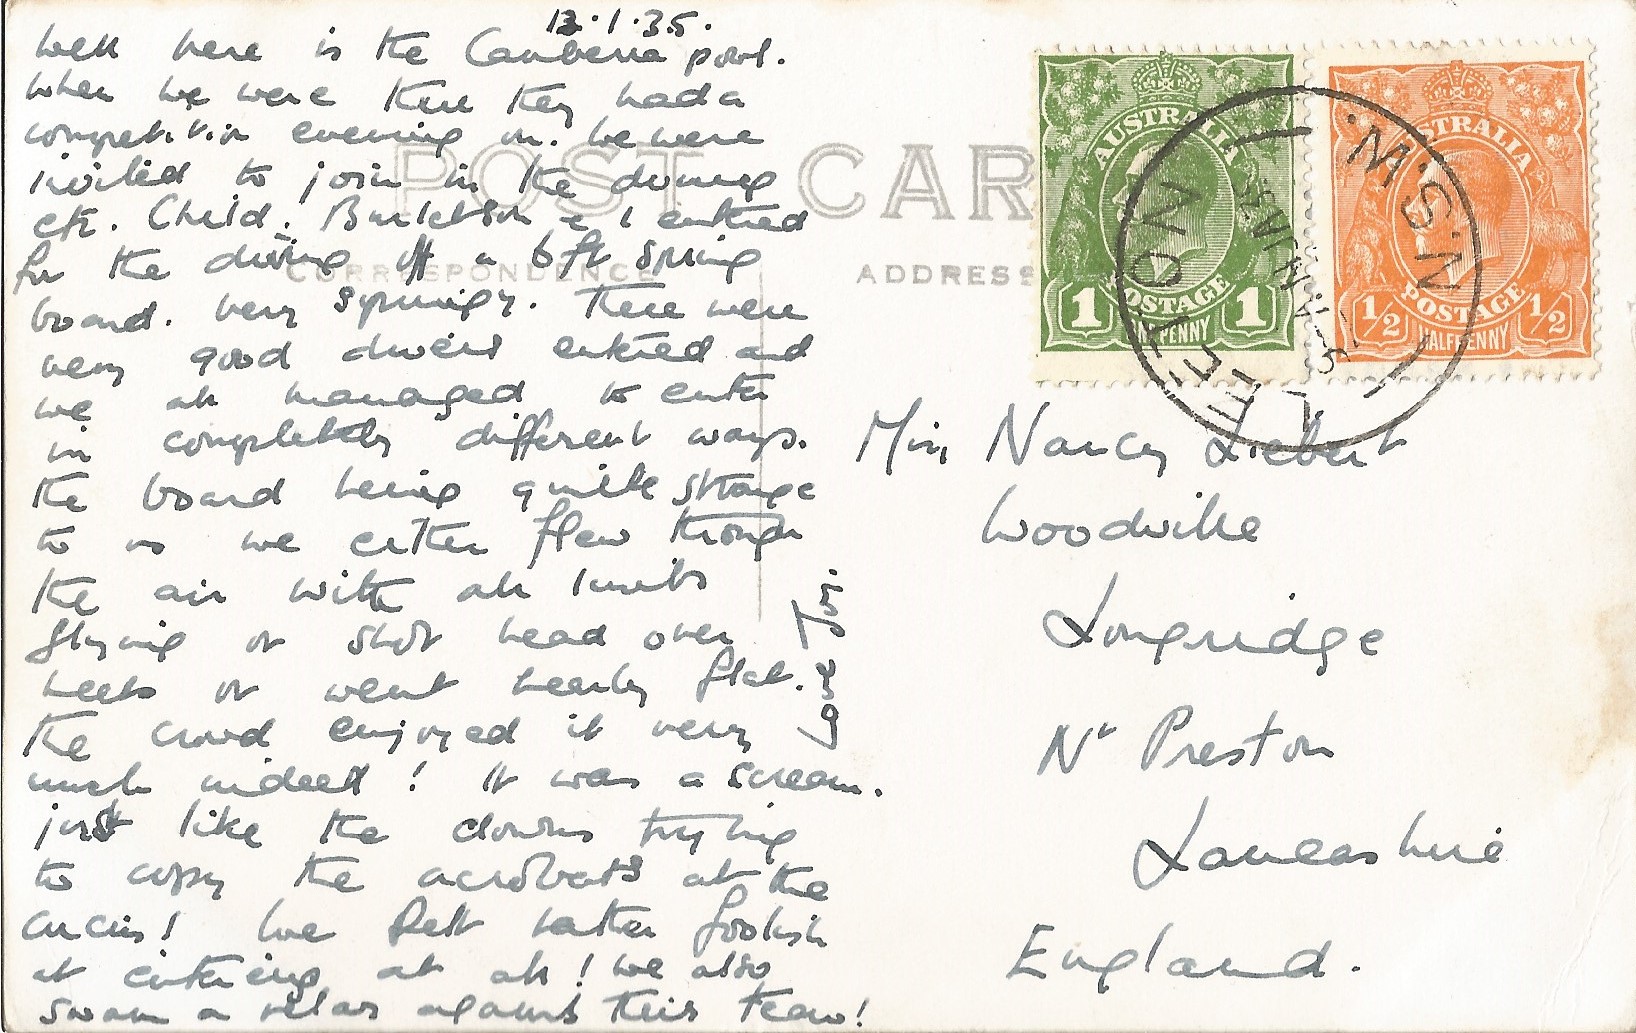 13.1.35.
Well here is the Canberra pool.
When we were there they had a
competition evening on. We were
invited to join in the diving
etc. Child, Burletson & I entered
for the diving off a 6ft spring
board. Very springy. There were
very good divers entered and
we all managed to enter
in completely different ways.
The board being quite strange
to us we either flew through
the air with all limbs
flying or shot head over
heels or went nearly flat.
The crowd enjoyed it very
much indeed! It was a scream.
just like the clowns trying
to copy the acrobats at the
circus! We felt rather foolish
at entering at all! We also
swam a relay against their team!
POST CAR
CORRESPONDENCE
ADDRESS
AUSTRALIA
1 1
POSTAGE
PENNY
STRALIA
1/2 1/2
POSTAGE
HALFPENNY
N.S.W.
Miss Nancy Liebert
Woodville
Longridge
Nr Preston
Lancashire
England.